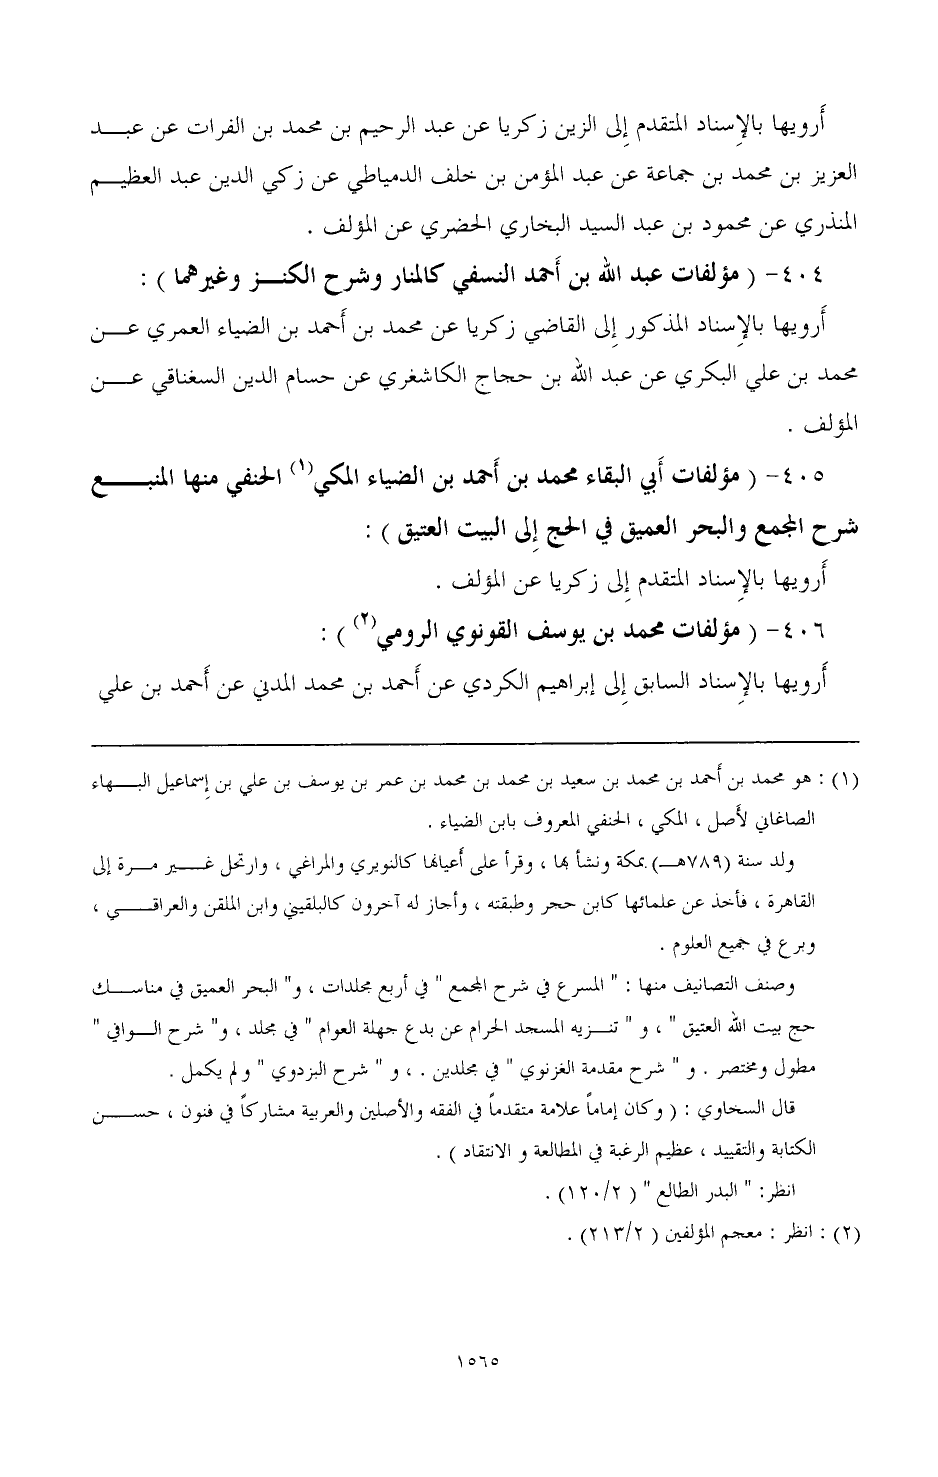 أرويها بالإسناد المتقدم إلى الزين زكريا عن عبد الرحيم بن محمد بن الفرات عن عبد
العزيز بن محمد بن جماعة عن عبد المؤمن بن خلف الدمياطي عن زكي الدين عبد العظيم
المنذري عن محمود بن عبد السيد البخاري الحضري عن المؤلف .
٤٠٤- ( مؤلفات عبد الله بن أحمد النسفي كالمنار وشرح الكنز وغيرهما ) :
أرويها بالإسناد المذكور إلى القاضي زكريا عن محمد بن أحمد بن الضياء العمري عن
محمد بن علي البكري عن عبد الله بن حجاج الكاشغري عن حسام الدين السغناقي عن
المؤلف .
٤٠٥- ( مؤلفات أبي البقاء محمد بن أحمد بن الضياء المكي(١) الحنفي منها المنبع
شرح المجمع والبحر العميق في الحج إلى البيت العتيق ) :
أرويها بالإسناد المتقدم إلى زكريا عن المؤلف .
٤٠٦- ( مؤلفات محمد بن يوسف القونوي الرومي(٢) ) :
أرويها بالإسناد السابق إلى إبراهيم الكردي عن أحمد بن محمد المدني عن أحمد بن علي
(١) : هو محمد بن أحمد بن محمد بن سعيد بن محمد بن محمد بن عمر بن يوسف بن علي بن إسماعيل البهاء
الصاغاني لأصل ، المكي ، الحنفي المعروف بابن الضياء .
ولد سنة (٧٨٩هـ) بمكة ونشأ بها ، وقرأ على أعيانها كالنويري والمراغي ، وارتحل غير مرة إلى
القاهرة ، فأخذ عن علمائها كابن حجر وطبقته ، وأجاز له آخرون كالبلقيني وابن الملقن والعراقي ،
وبرع في جميع العلوم .
وصنف التصانيف منها : " المسرع في شرح المجمع " في أربع مجلدات ، و" البحر العميق في مناسك
حج بيت الله العتيق " ، و " تنزيه المسجد الحرام عن بدع جهلة العوام " في مجلد ، و" شرح الوافي "
مطول ومختصر . و " شرح مقدمة الغزنوي " في مجلدين . ، و " شرح البزدوي " ولم يكمل .
قال السخاوي : ( وكان إماماً علامة متقدماً في الفقه والأصلين والعربية مشاركاً في فنون ، حسن
الكتابة والتقييد ، عظيم الرغبة في المطالعة و الانتقاد ) .
انظر: " البدر الطالع " ( ١٢٠/٢) .
(٢) : انظر : معجم المؤلفين ( ٢١٣/٢) .
١٥٦٥